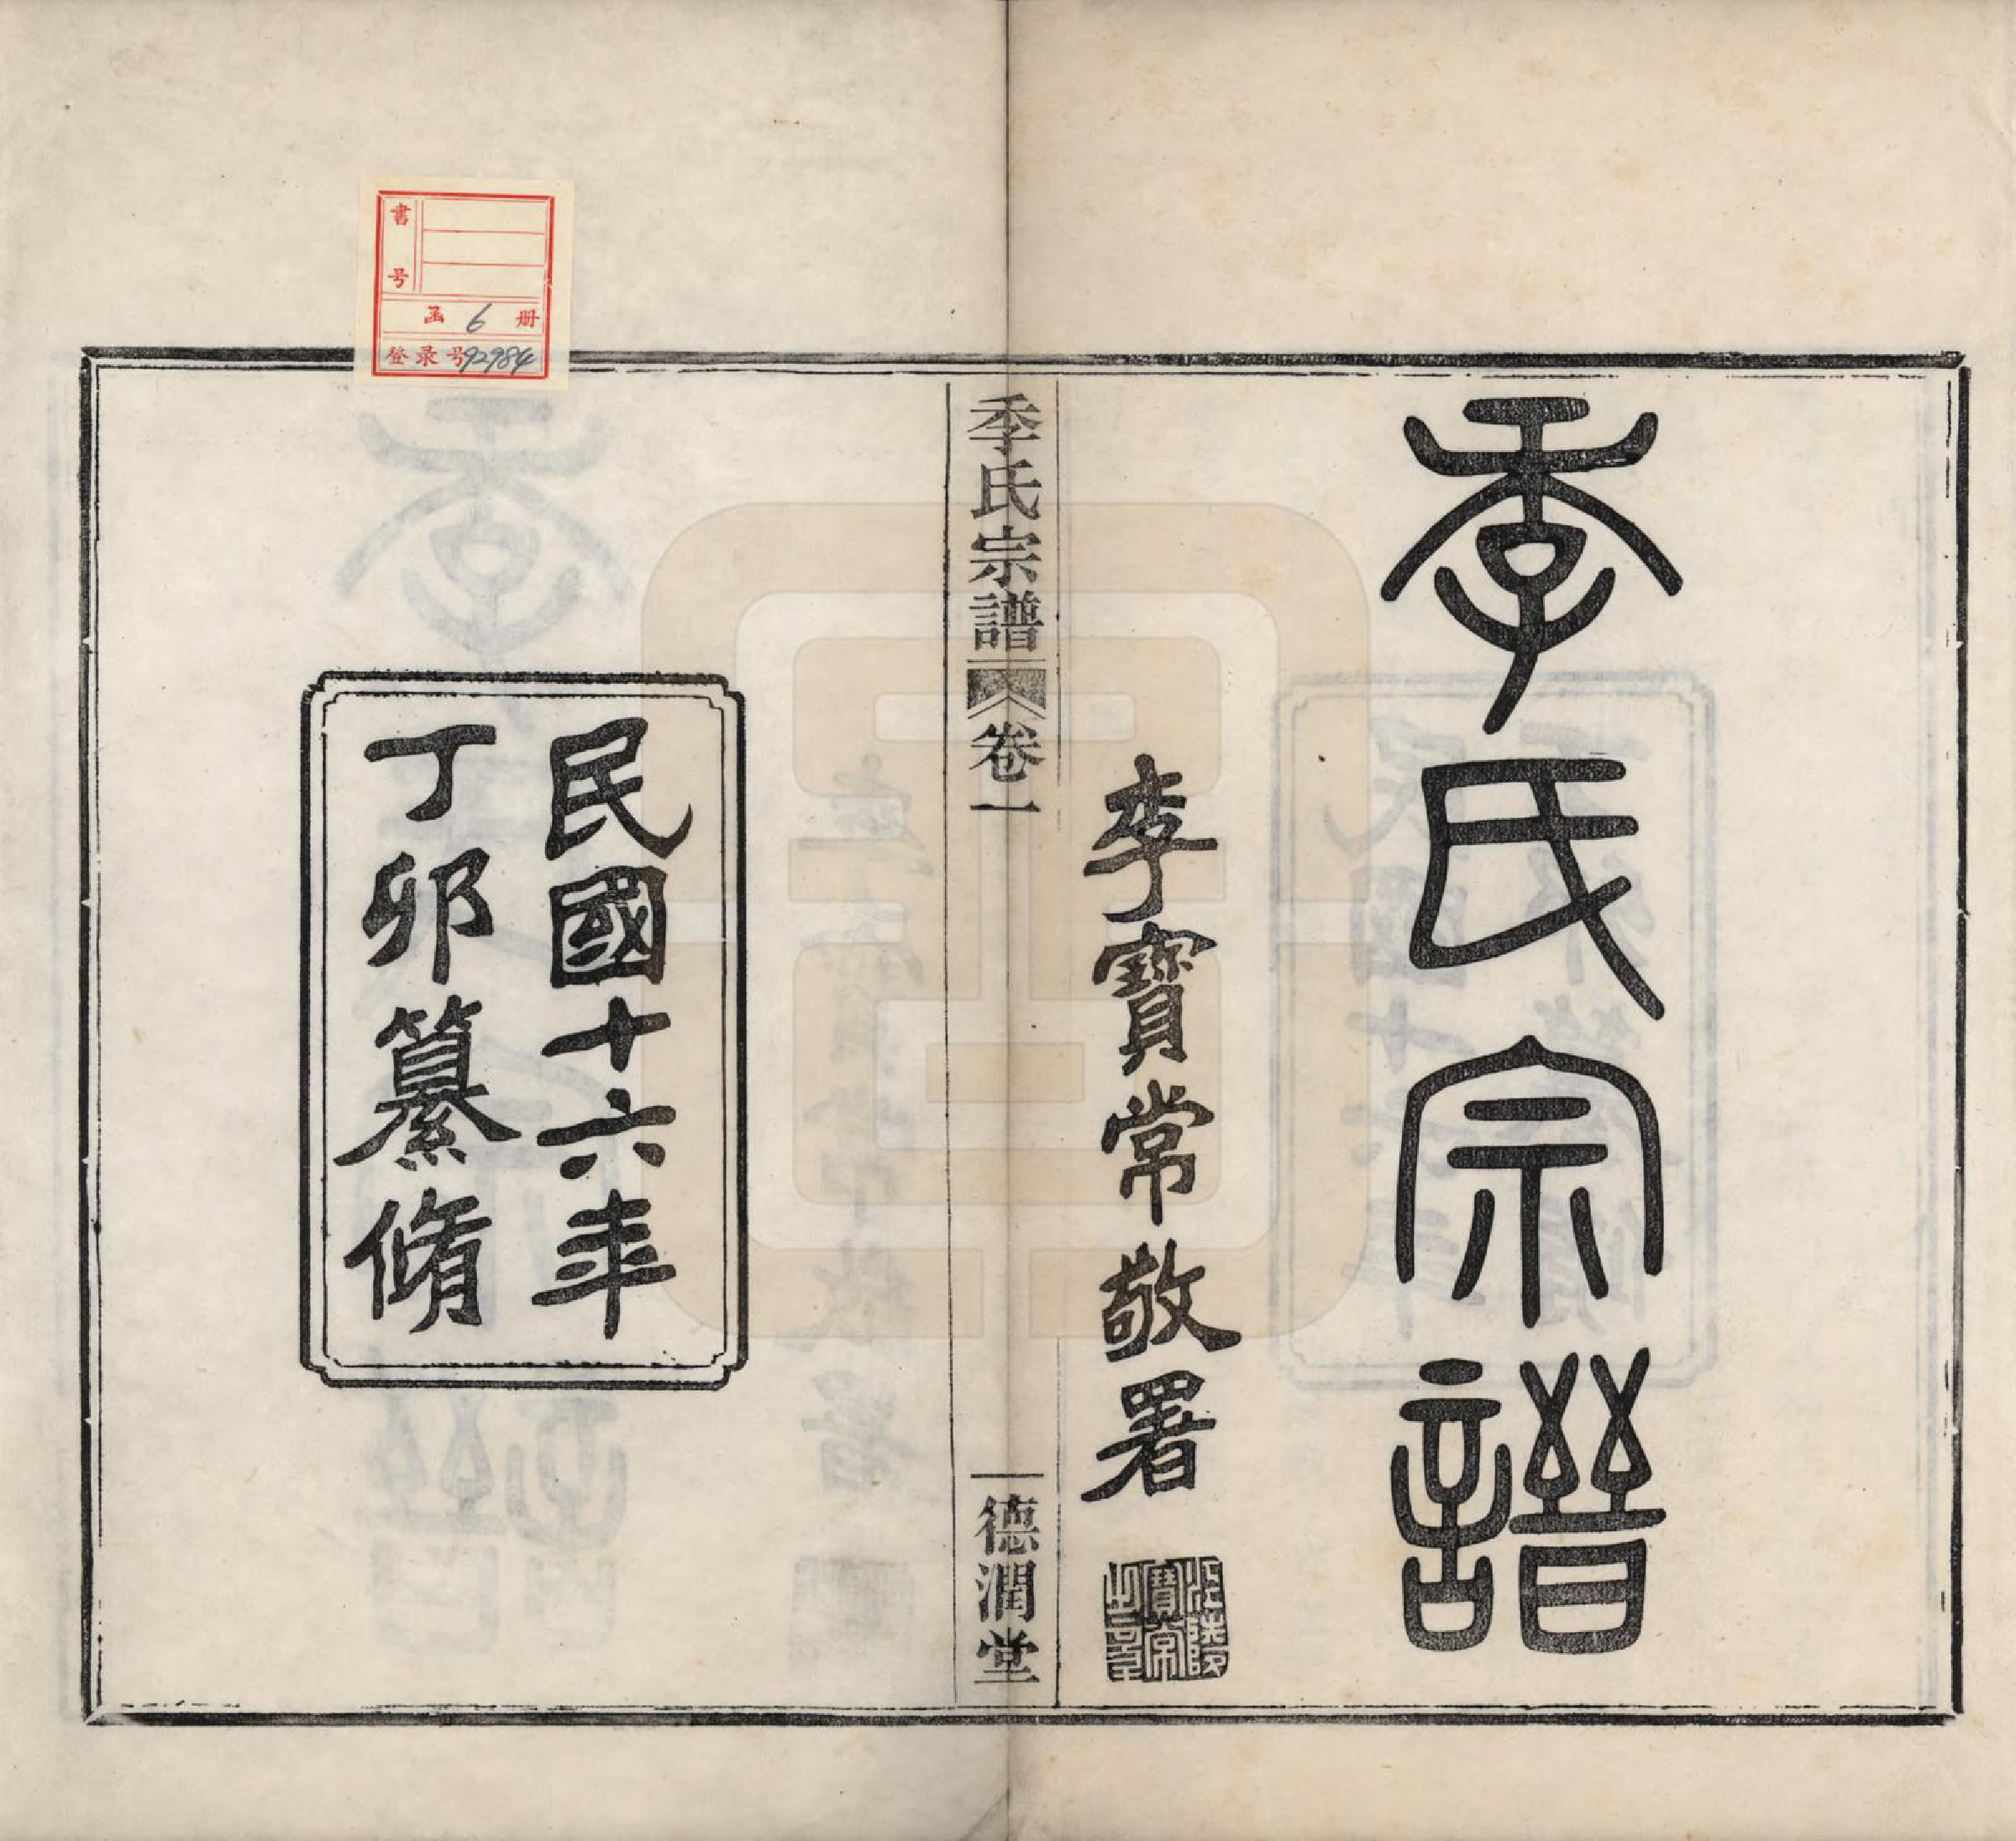 季氏宗譜
李寶常敬署
江陰
寶常
之印
季氏宗譜 卷一 德潤堂
民國十六年
丁卯纂脩
書号
函 6 册
登录号92984